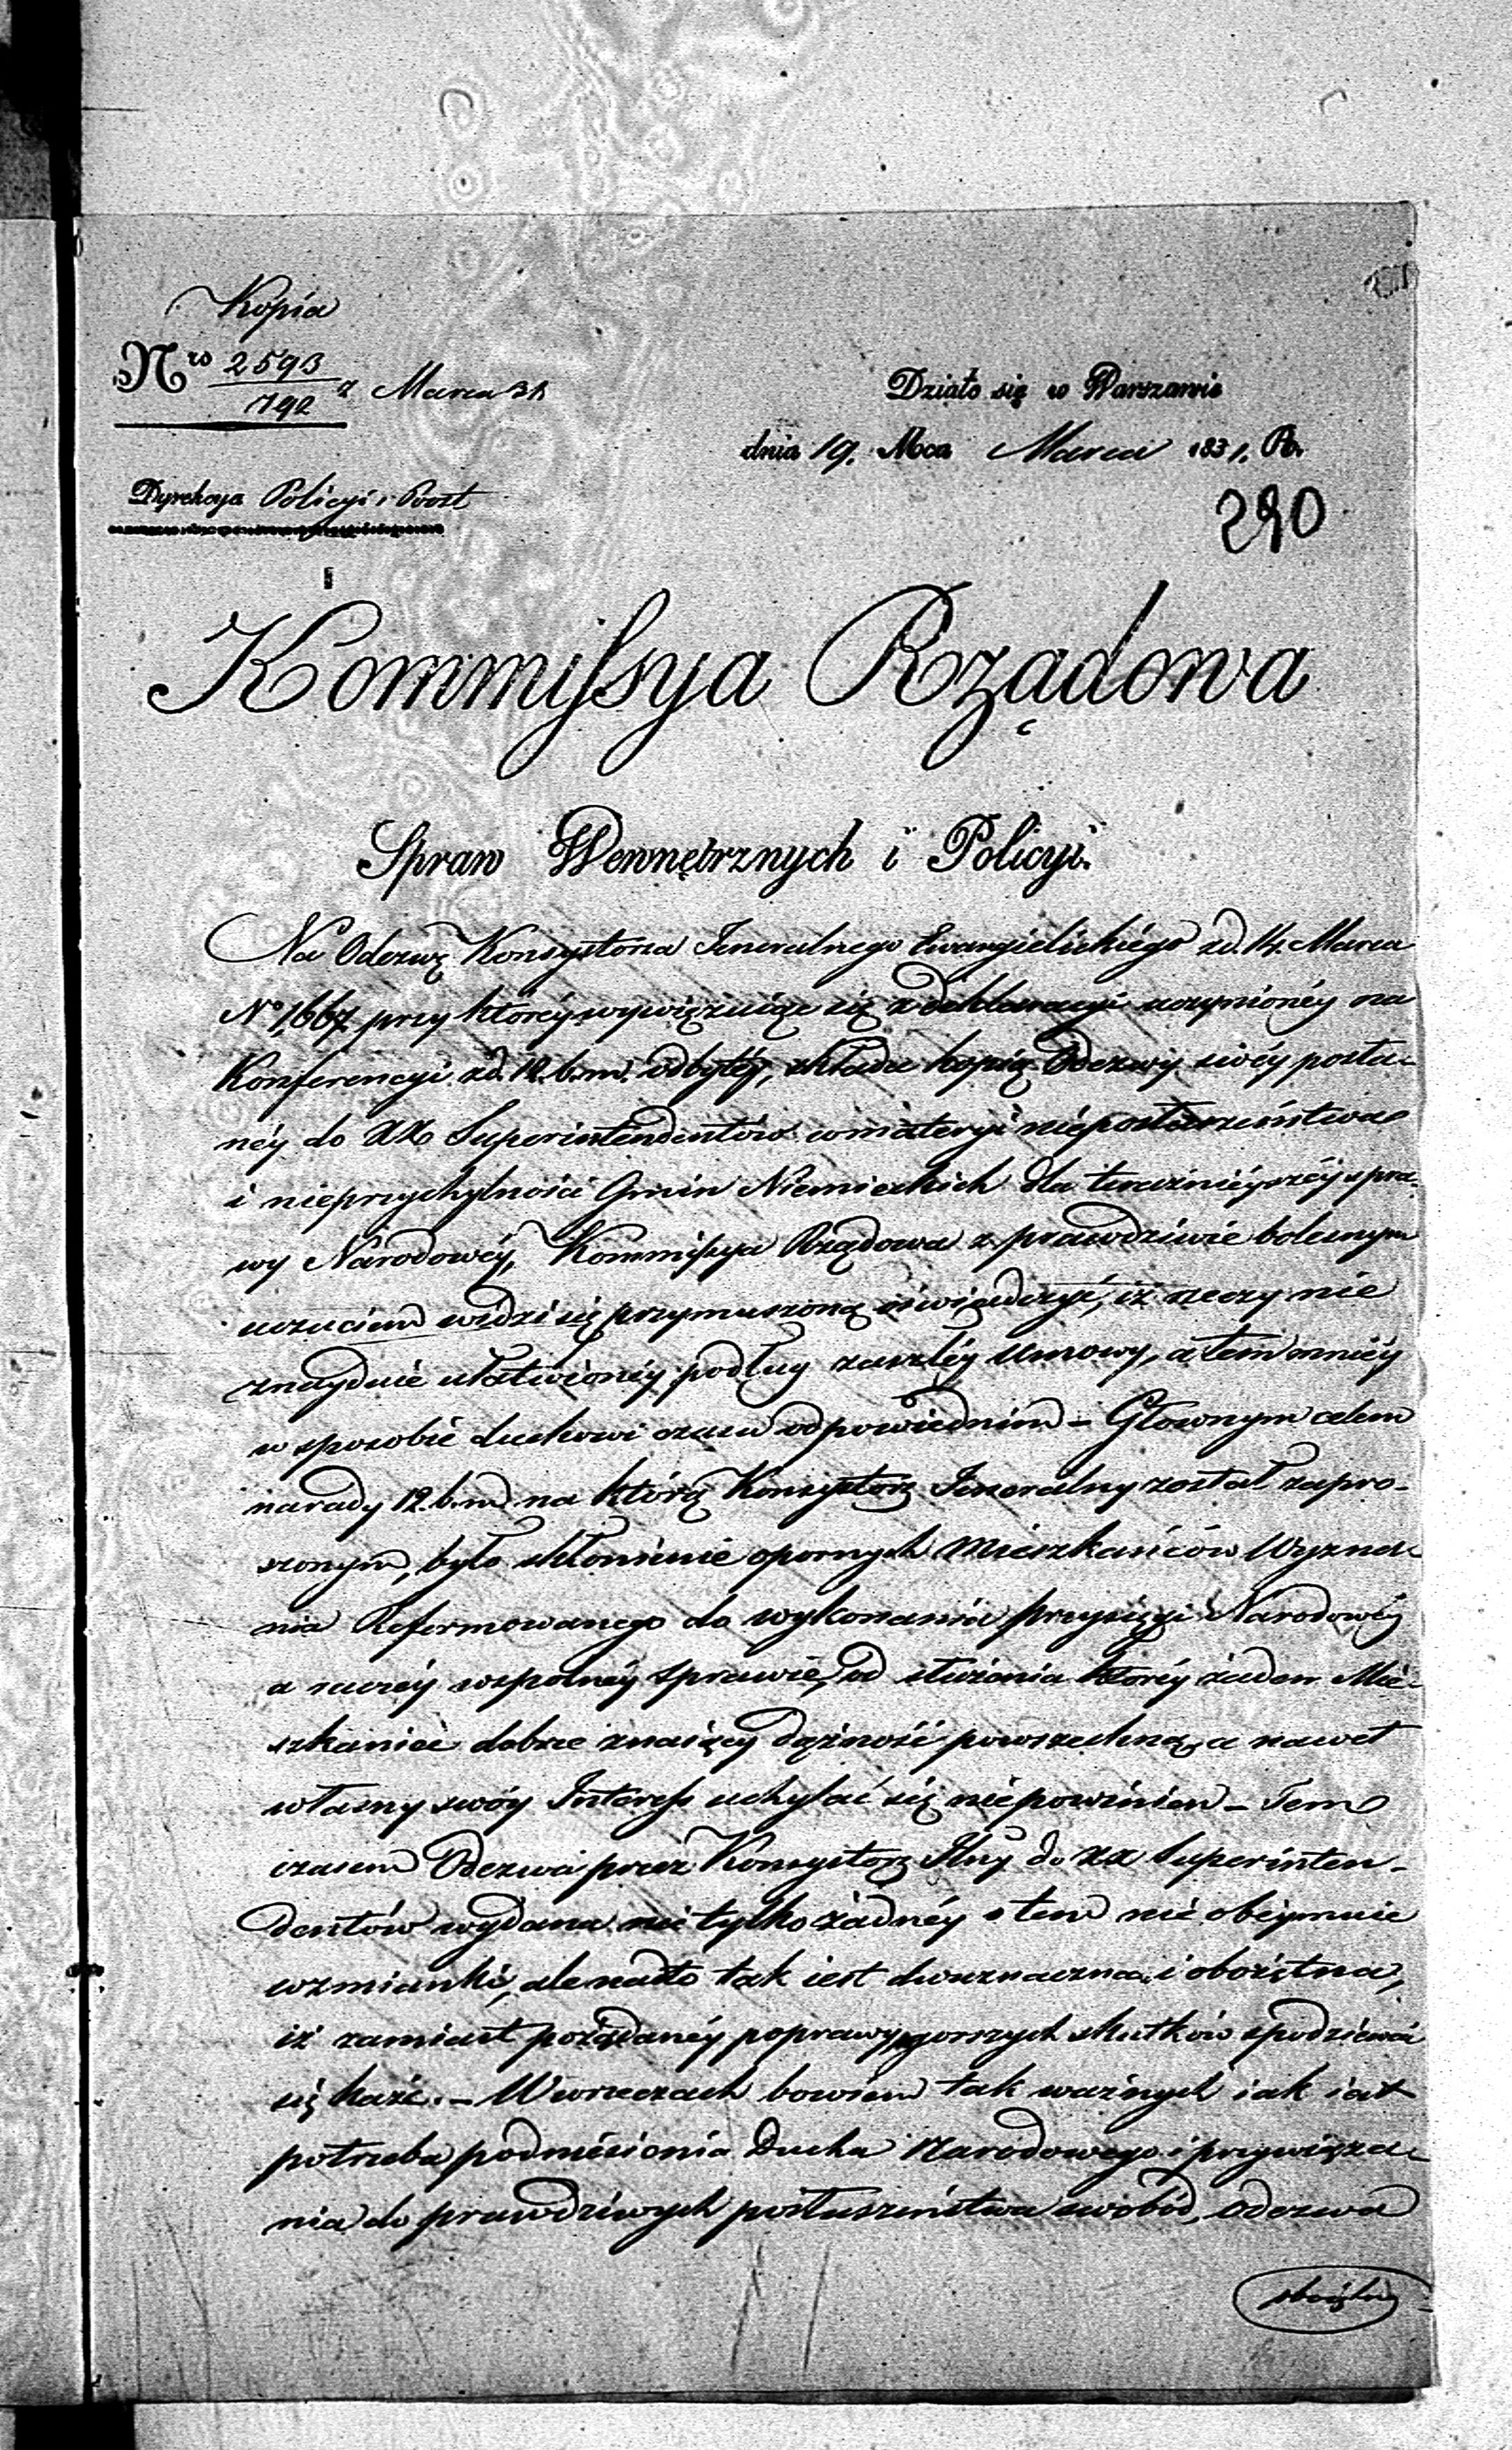 Kopia
Nro 2593/792 z Marca 31
Działo się w Warszawie
dnia 19. Mca Marca 1831. R.
Dyrekcya Policyi i Poczt
290
Kommissya Rządowa
Spraw Wewnętrznych i Policyi.
Na Odezwę Konsystorza Jeneralnego Ewangielickiégo zd. 14. Marca
No 1667 przy któréy wywięzuiąc się z deklaracyi uczynionéy na
Konferencyi zd. 12. b. m. odbytéy, składa kopią Odezwy swéy posła-
néy do XX Superintendentów w materyi nieposłuszeństwa
i nieprzychylności Gmin Niemieckich dla teraźniéyszéy spra-
wy Narodowéy, Kommissya Rządowa z prawdziwie bolesnym
uczuciem widzi się przymuszoną oświadczyć, iż rzeczy nie
znayduie ułatwionéy podług zaszłéy Umowy, a tem mniéy
w sposobie duchowi czasu odpowiednim – Głownym celem
narady 12. b. m. na którą Konsystorz Jeneralny został zapro-
szonym, było skłonienie opornych Mieszkańców Wyzna-
nia Reformowanego do wykonania przysięgi Narodowéy
a raczéy wspolnéy Sprawie, od służenia któréy żaden Mie-
szkaniec dobrze znaiący dążność powszechną, a nawet
własny swóy Interess uchylać się niepowinien – Tem
czasem Odezwa przez Konsystorz Jlny do XX Superinten-
dentów wydana nie tylko żadnéy o tem nie obéymuie
wzmianki, ale nadto tak iest dwuznaczna i oboiętna,
iż zamiast pożądanéy poprawy gorszych skutków spodziewać
się każe. – W rzeczach bowiem tak ważnych iak iest
potrzeba podniesienia Ducha Narodowego i przywiąza-
nia do prawdziwych posłuszeństwa swobód, odezwa